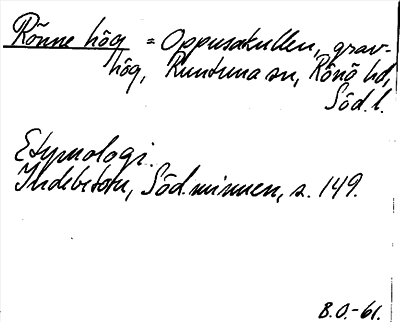 Rönne hög = Oppusakullen, grav-
hög, Runtuna sn, Rönö hd,
Söd. l.
Etymologi.
Indebetou, Söd. minnen, s. 149.
B.O.-61.